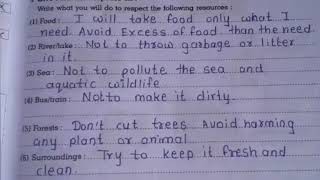 Write what you will do to respect the following resources :
(1) Food : I will take food only what I
need. Avoid Excess of food than the need.
(2) River/lake : Not to throw garbage or litter
in it.
(3) Sea : Not to pollute the sea and
aquatic wildlife
(4) Bus/train : Not to make it dirty.
(5) Forests : Don't cut trees Avoid harming
any plant or animal
(6) Surroundings : Try to keep it fresh and
clean.